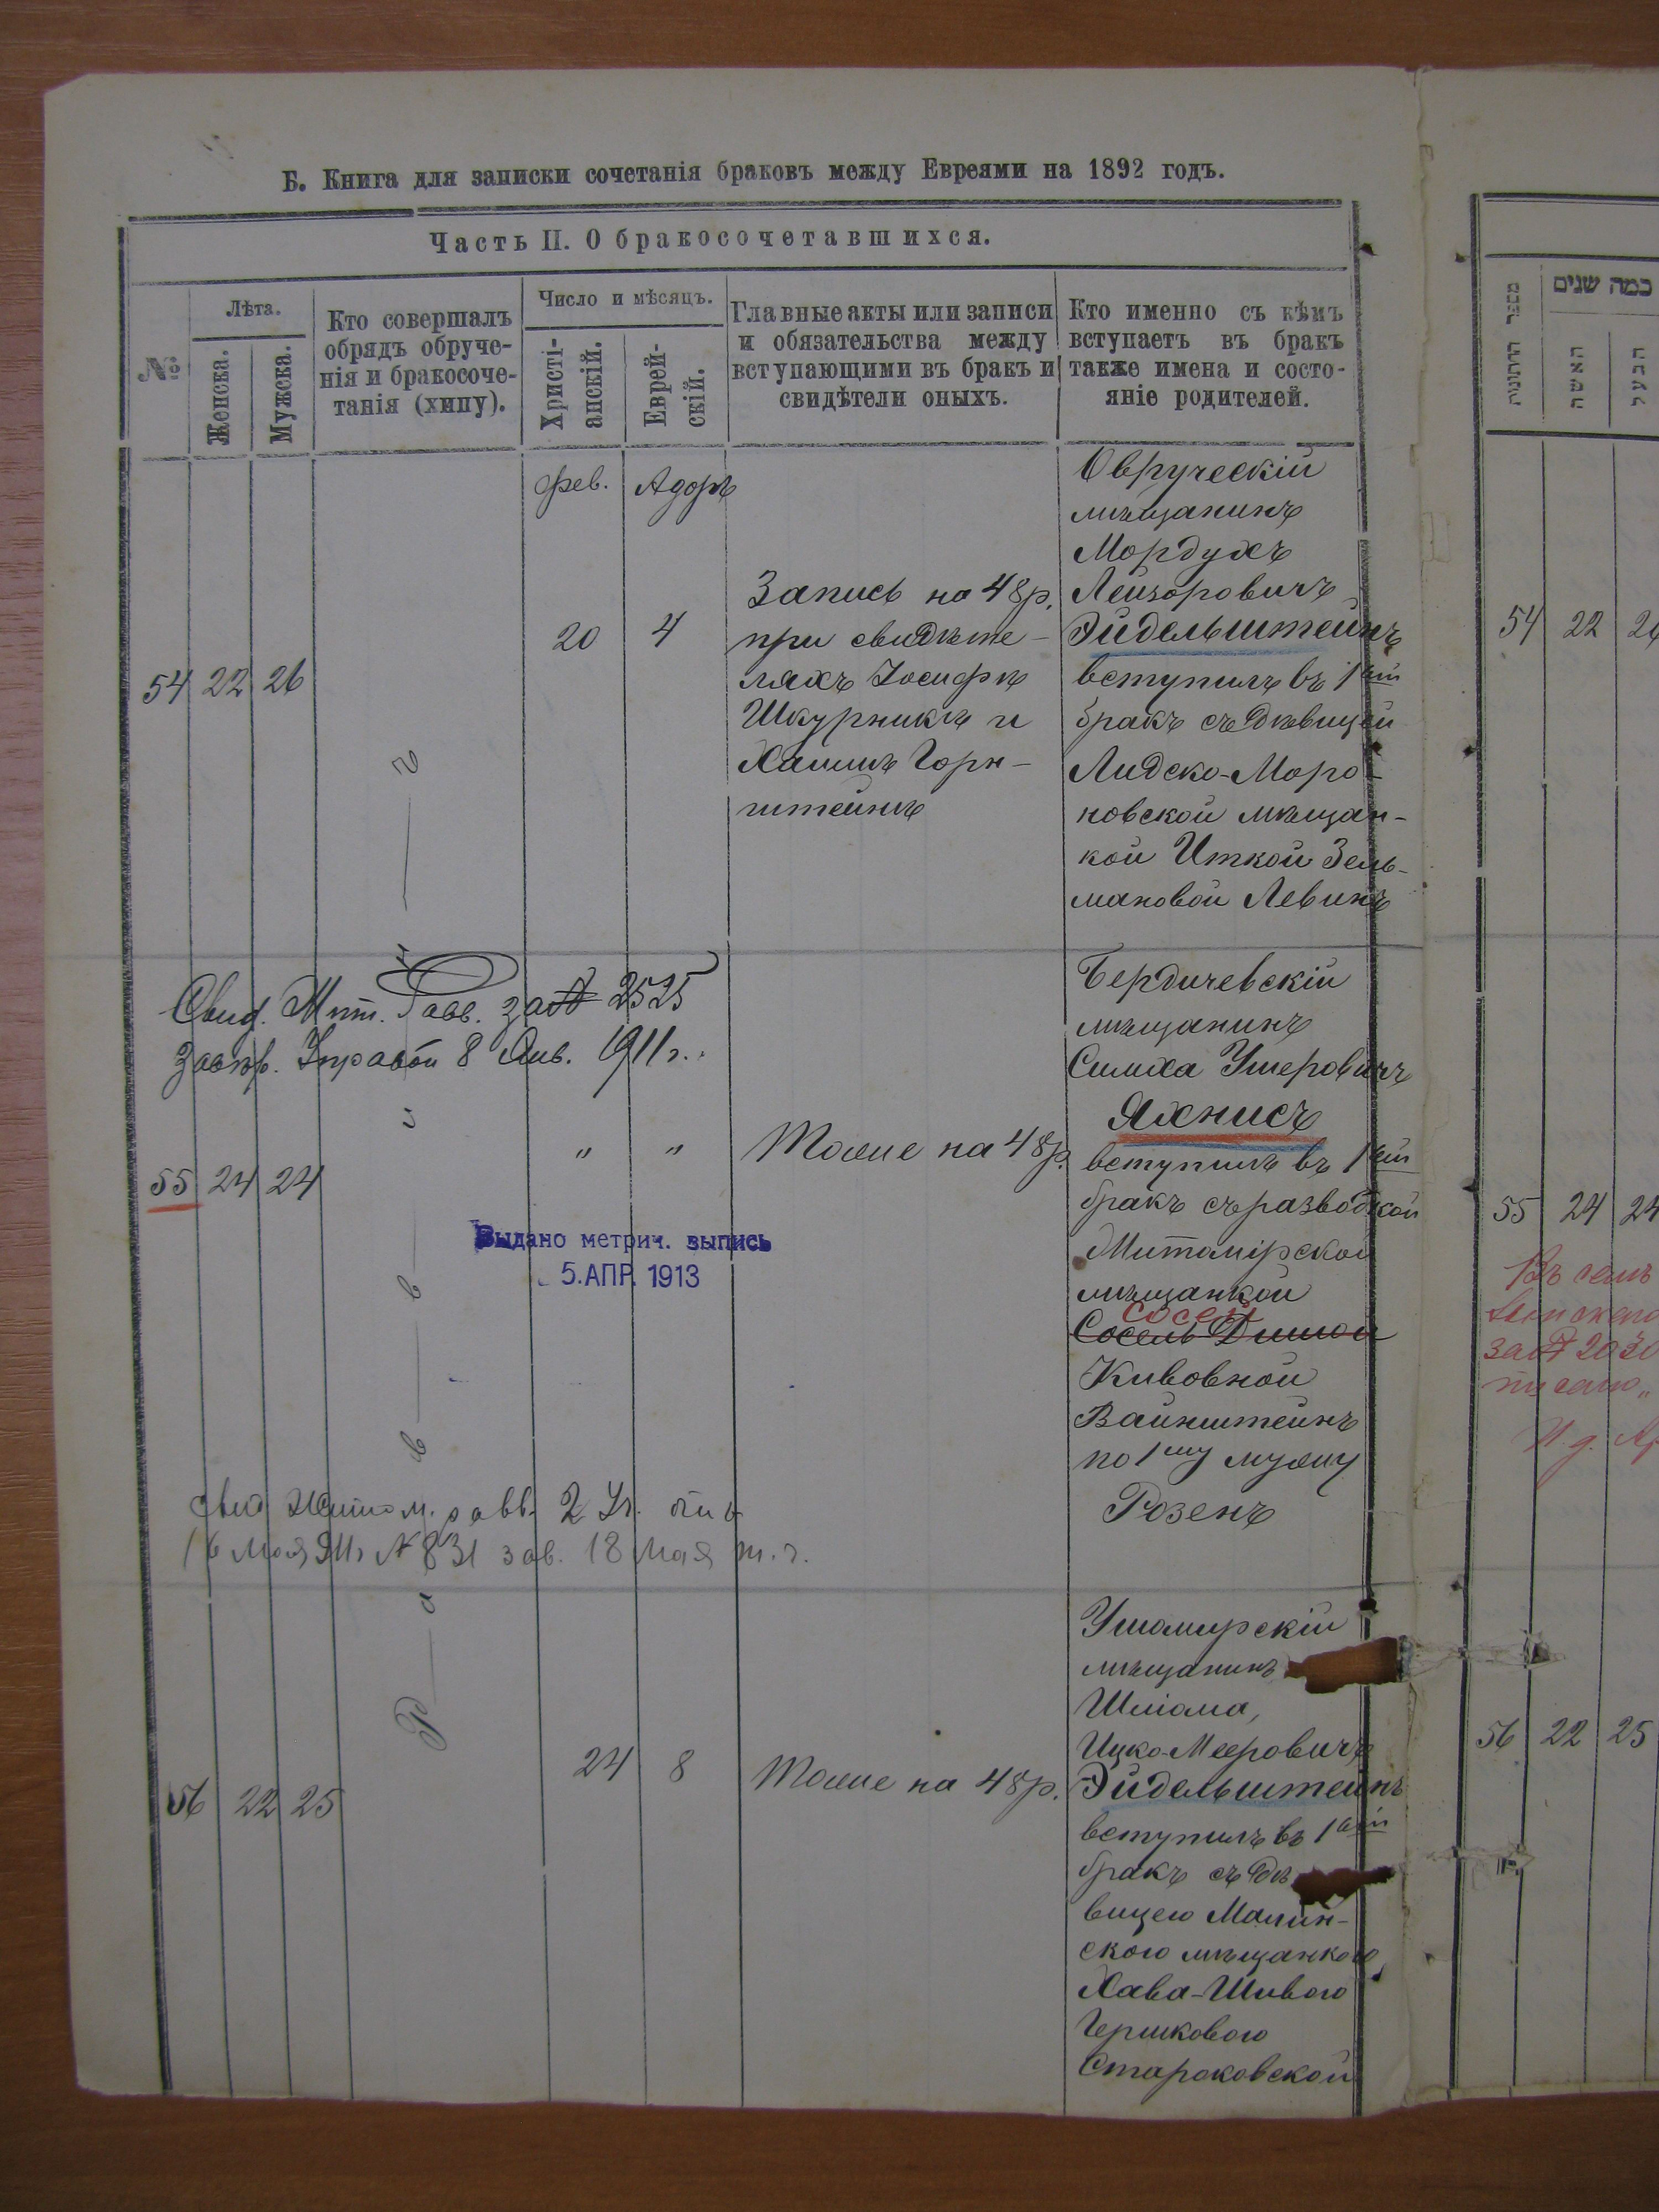 Б. Книга для записки сочетанія браковъ между Евреями на 1892 годъ.
Часть II. О бракосочетавшихся.
№
Лѣта.
Женска.
Мужска.
Кто совершалъ
обрядъ обруче-
нія и бракосоче-
танія (хипу).
Число и мѣсяцъ.
Христі-
анскій.
Еврей-
скій.
Главные акты или записи
и обязательства между
вступающими въ бракъ и
свидѣтели оныхъ.
Кто именно съ кѣмъ
вступаетъ въ бракъ
также имена и состо-
яніе родителей.
фев. Адоръ
54 22 26
20 4
Запись на 48 р.
при свидѣте-
ляхъ Іосифѣ
Шкурникѣ и
Хаимѣ Горн-
штейнѣ
Овруческій
мѣщанинъ
Мордухъ
Лейзоровичъ
Эйдельштейнъ
вступилъ въ 1ый
бракъ съ дѣвицей
Лидско-
новской мѣщан-
кой Иткой Зель-
мановой Левинъ
Свид. Жит. Равв. за № 2525
Управой 8 Янв. 1911 г.
55 24 24
" "
Тоже на 48 р.
Выдано метрич. выпись
5. АПР. 1913
Бердичевскій
мѣщанинъ
Симха Ушеровичъ
Яхнисъ
вступилъ въ 1ый
бракъ съ разводкой
Житомірской
мѣщанкой
Сосей
Сосель
Кивовной
Вайнштейнъ
по 1му мужу
Розенъ
свид Житом. равв. 2 Уч.
16 мая 911 г № 831 зав. 18 мая т. г.
Раввинъ
56 22 25
24 8
Тоже на 48 р.
Ушомирскій
мѣщанинъ
Шліома,
Ицко-Мееровичъ
Эйдельштейнъ
вступилъ въ 1ый
бракъ съ дѣ
вицею Малин-
скою мѣщанкою
Хава-Шивою
Гершковою
Староковской
מספר החתונות
כמה שנים
האשה
הבעל
54 22 26
55 24 24
Въ семъ
за № 2030
И. д.
56 22 25